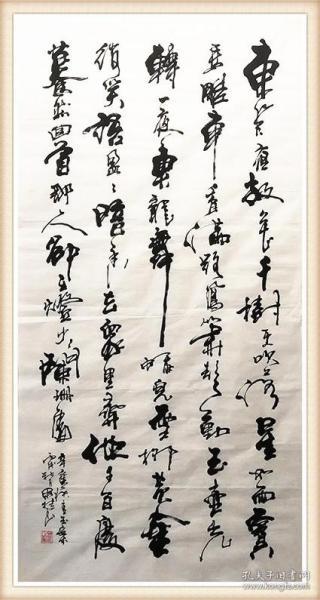 東風夜放花千樹更吹落星如雨寶
馬雕車香滿路鳳簫聲動玉壺光
轉一夜魚龍舞蛾兒雪柳黃金
縷笑語盈〻暗香去眾里尋他千百度
驀然回首那人卻在燈火闌珊處
辛棄疾詞青玉案
孔夫子旧书网